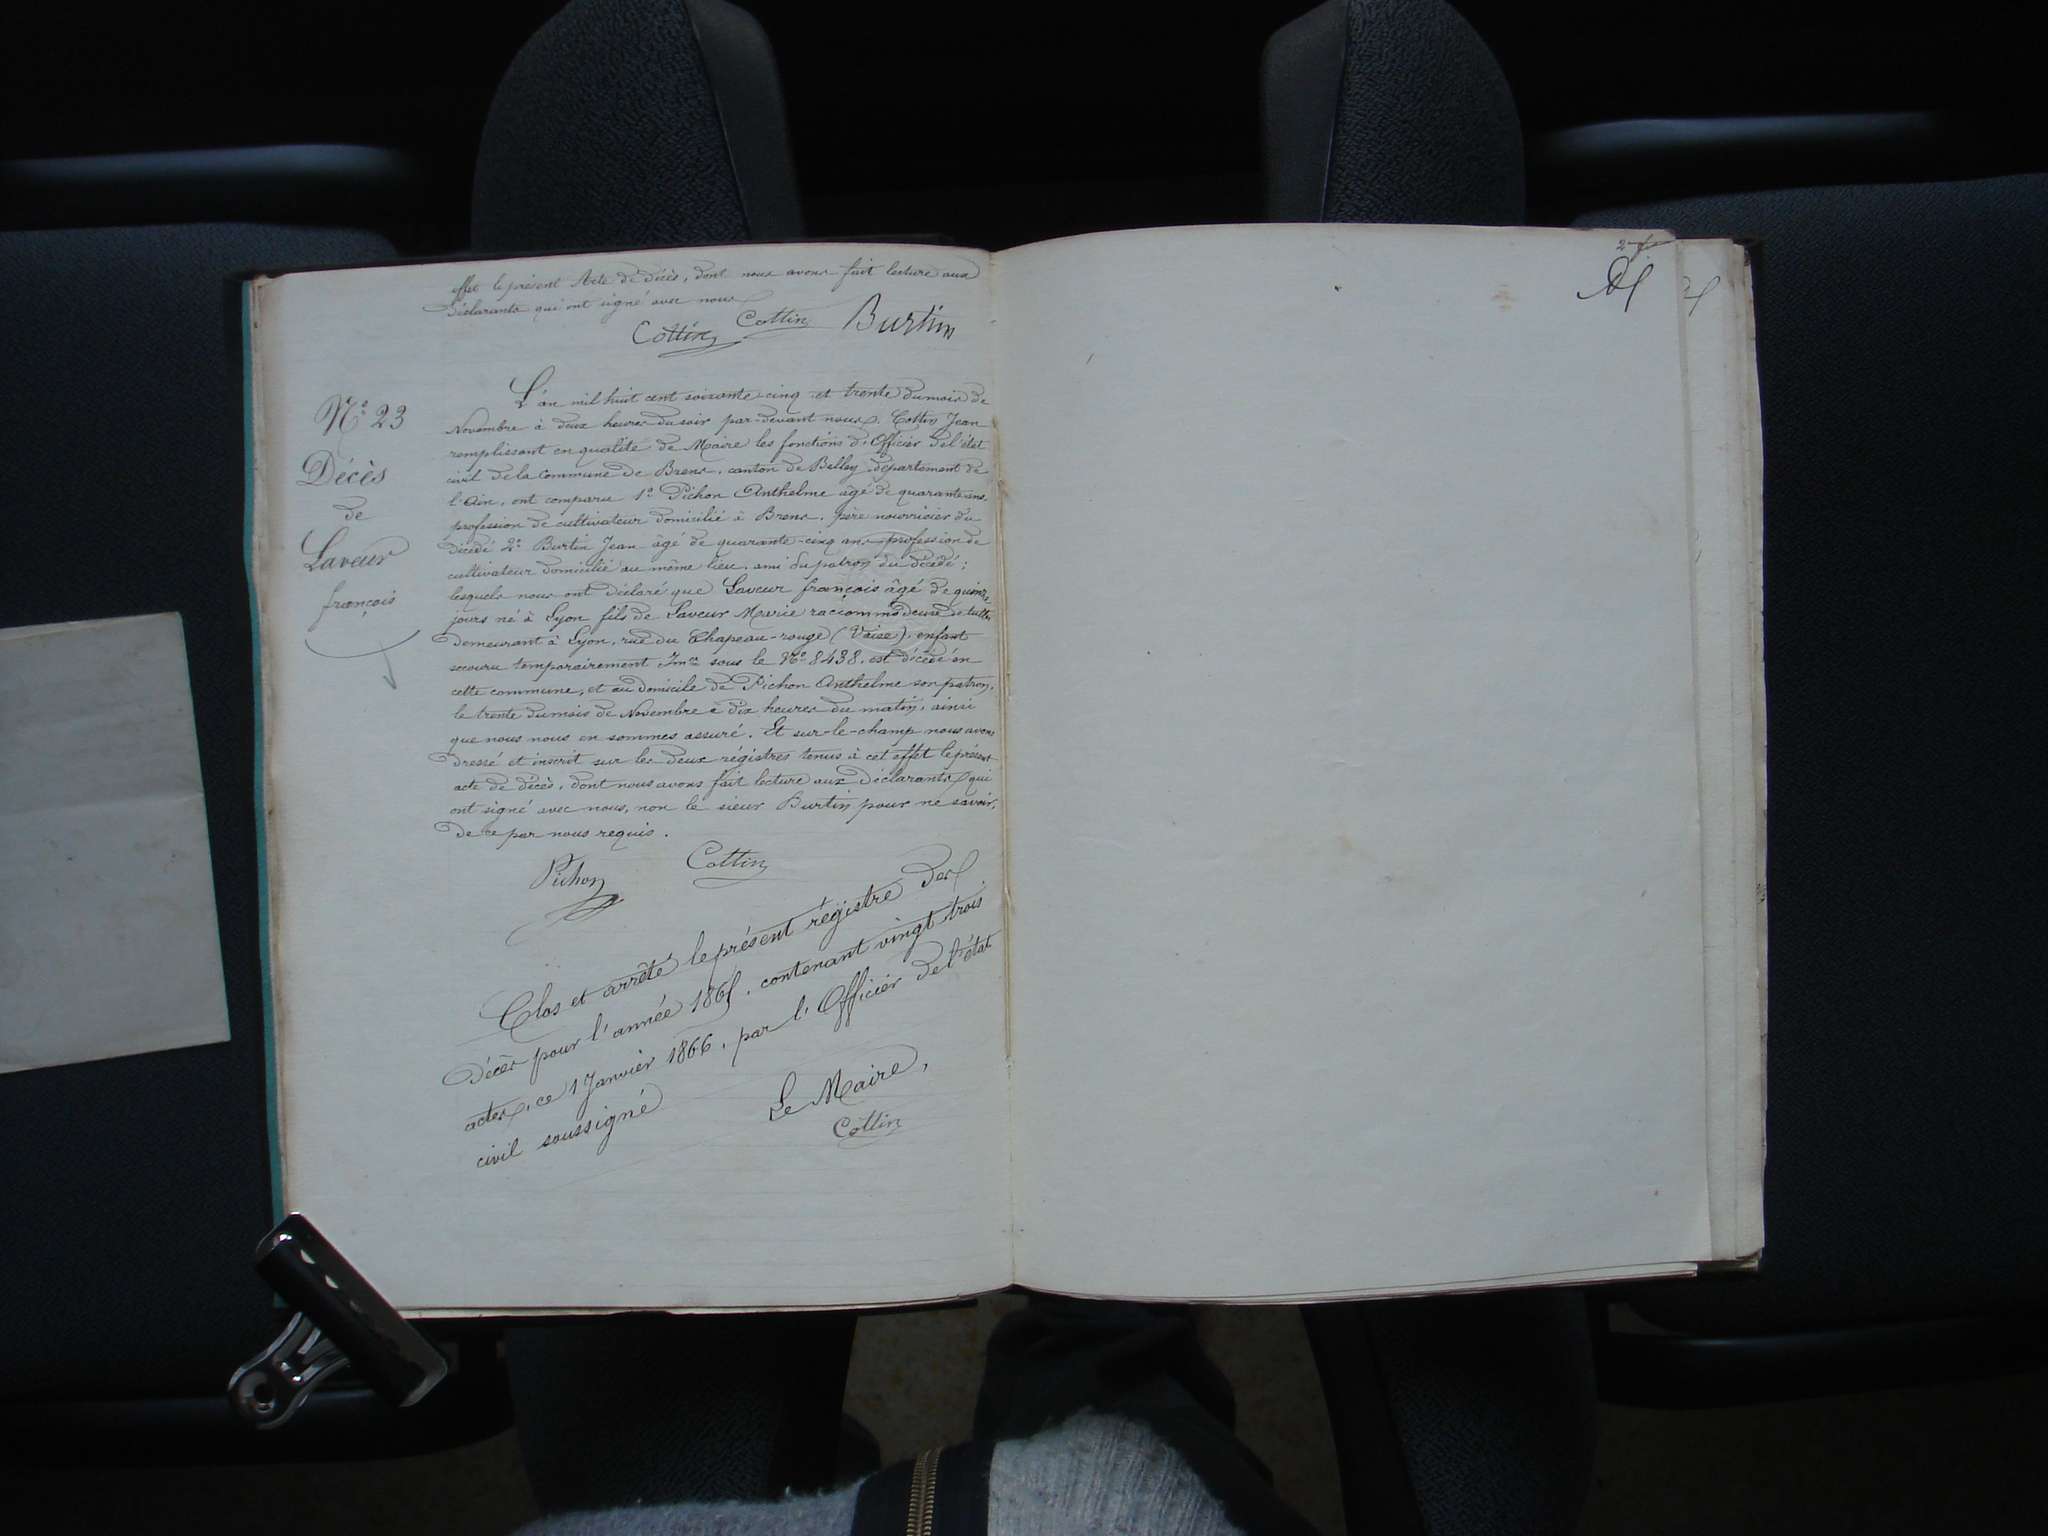 effet le présent Acte de décès, dont nous avons fait lecture aux
déclarants qui ont signé avec nous
Cottin Cottin Burtin
N° 23
Décès
de
Laveur
françois
L'an mil huit cent soixante cinq et trente du mois de
Novembre à deux heures du soir par-devant nous, Cottin Jean
remplissant en qualité de Maire les fonctions d'Officier de l'état
civil de la Commune de Brens, canton de Belley, département de
l'Ain, ont comparu 1° Pichon Anthelme âgé de quarante ans
profession de cultivateur domicilié à Brens, père nourricier du
décédé 2° Burtin Jean âgé de quarante-cinq ans profession de
cultivateur domicilié au même lieu, ami du patron du décédé;
lesquels nous ont déclaré que Laveur françois âgé de quinze
jours né à Lyon fils de Laveur Marie raccommodeuse de tulle
demeurant à Lyon, rue du Chapeau-rouge (Vaise), enfant
secouru temporairement sous le N° 8438, est décédé en
cette commune, et au domicile de Pichon Anthelme son patron,
le trente du mois de Novembre à dix heures du matin, ainsi
que nous nous en sommes assuré. Et sur-le-champ nous avons
dressé et inscrit sur les deux régistres tenus à cet effet le présent
acte de décès, dont nous avons fait lecture aux déclarants qui
ont signé avec nous, non le sieur Burtin pour ne savoir,
de ce par nous requis.
Pichon Cottin
Clos et arrêté le présent régistre des
décès pour l'année 1865, contenant vingt trois
actes, ce 1 Janvier 1866, par l'Officier de l'état
civil soussigné
Le Maire,
Cottin